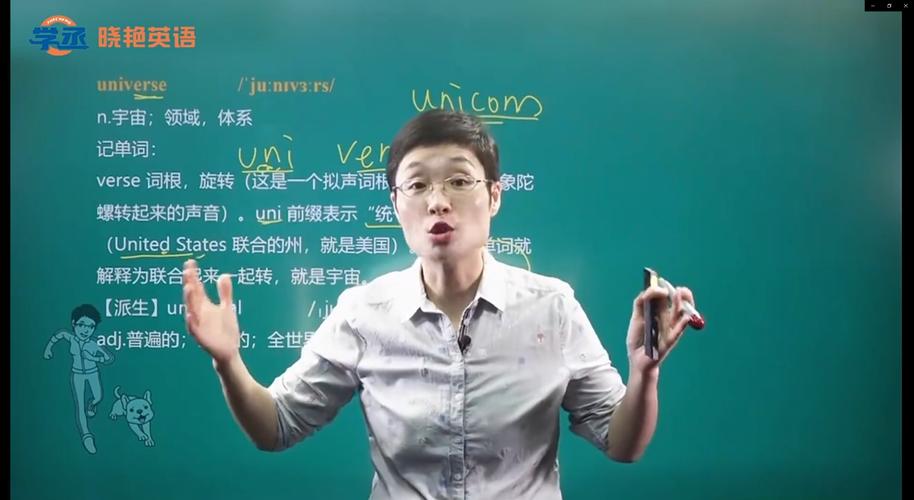 学丞 晓艳英语
universe /ˈjuːnɪvɜːrs/
unicom
n.宇宙；领域，体系
记单词：
uni ver
verse 词根，旋转（这是一个拟声词根 象陀
螺转起来的声音）。uni 前缀表示 “统
（United States 联合的州，就是美国） 单词就
解释为联合起来一起转，就是宇宙。
【派生】un l /ˌju
adj.普遍的； 的；全世界